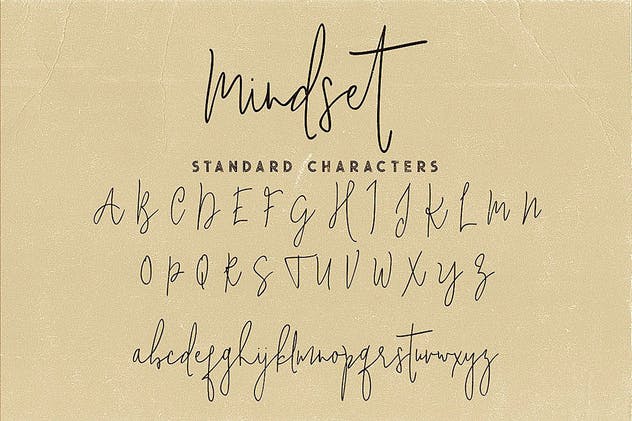 Mindset
STANDARD CHARACTERS
A B C D E F G H I J K L M N
O P Q R S T U V W X Y Z
abcdefghijklmnopqrstuvwxyz